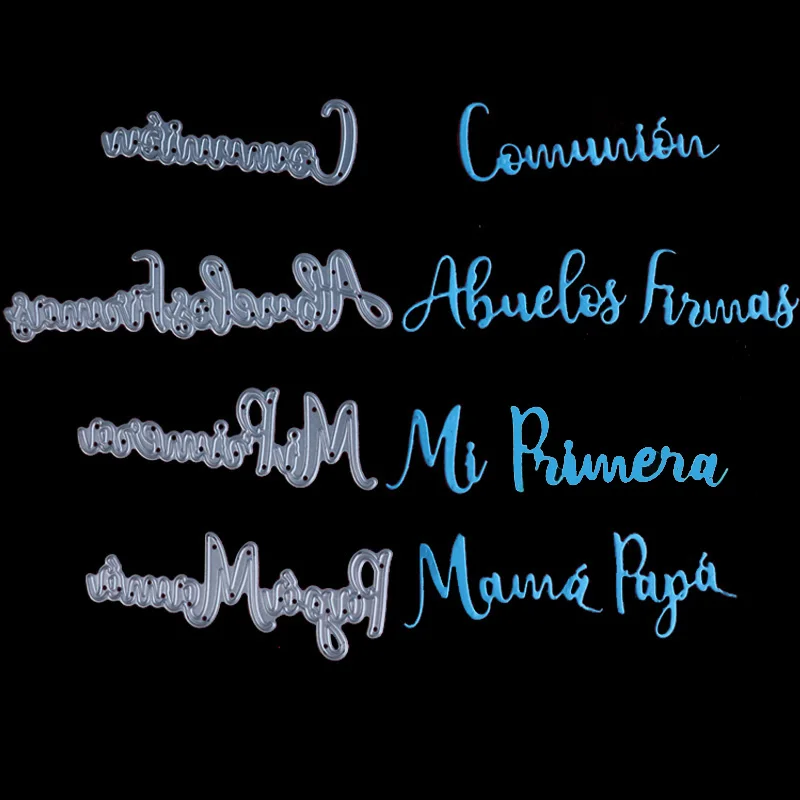 Comunión
Abuelos Firmas
Mi Primera
Mamá Papá